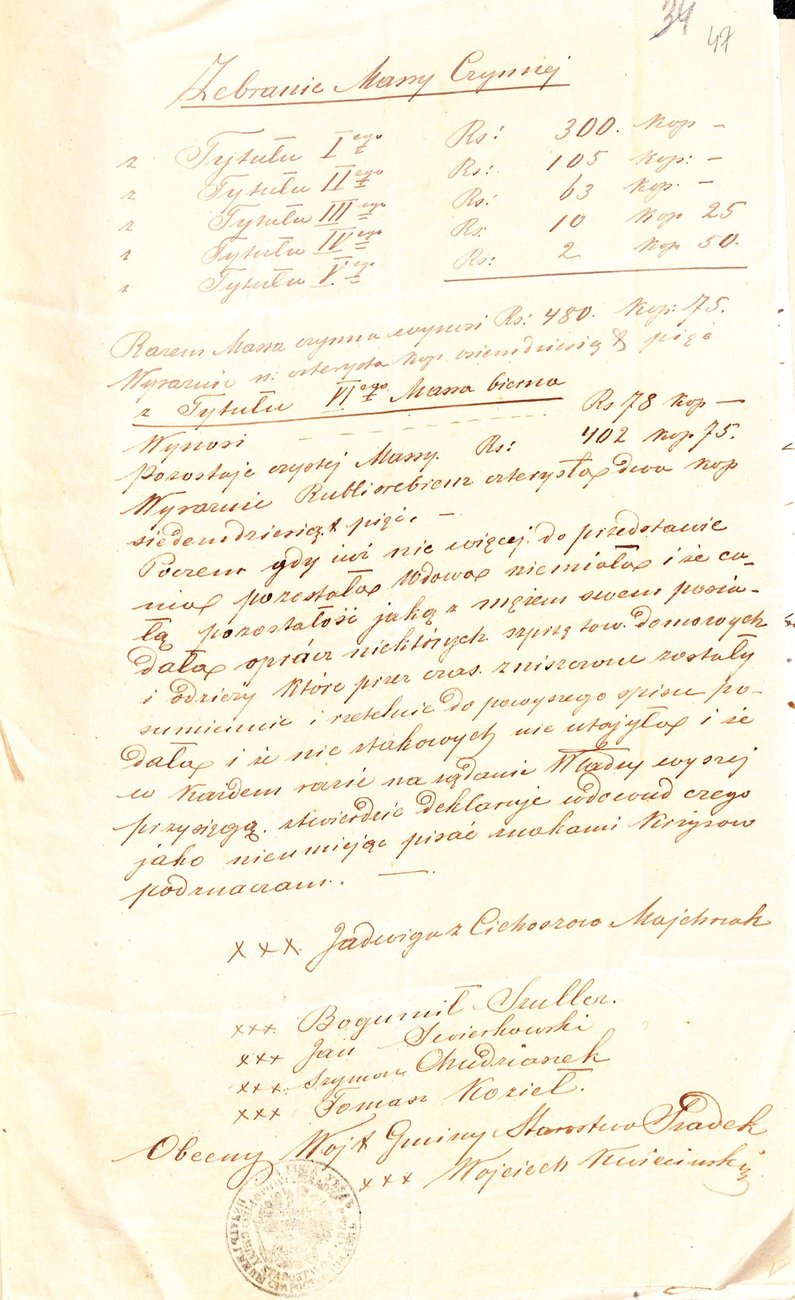 34
47
Zebranie Massy Czynnej
z Tytułu I ego Rs: 300. kop –
z Tytułu II ego Rs: 105 kop: –
z Tytułu III ego Rs: 63 kop. –
z Tytułu IV ego Rs 10 kop 25
z Tytułu V ego Rs: 2 kop 50.
Razem Massa czynna wynosi Rs: 480. kop: 75.
Wyraźnie rs. czterysta kop osiemdziesiąt pięć
z Tytułu VI ego Massa bierna
Wynosi Rs 78 kop –
Pozostaje czystej Massy. Rs: 402 kop 75.
Wyraźnie Rublisrebrem czterysta dwa kop
siedemdziesiąt pięć. –
Poczem gdy już nic więcej do przedstawie
nia pozostała wdowa niemiała i że ca-
łą pozostałość jaką z mężem swem posia-
dała oprócz niektórych sprzętow domowych
i odzieży które przez czas zniszczone zostały
sumiennie i rzetelnie do powyższego spisu po-
dała i że nic z takowych nie utajyła i że
w każdem razie na żądanie Władzy wyższej
przysięgą stwierdzić deklaruje wdowud czego
jako nieumiejąc pisać znakami Krzyżow
podznaczam. –
XXX. Jadwiga z Cichoszow Majchrzak
xxx. Bogumił Szuller.
xxx Jan Swierkowski
xxx Szymon Chudzianek
xxx Tomasz Kozieł.
Obecny Wojt Gminy Starostwo Gradek
xxx Wojciech Kwiecinski